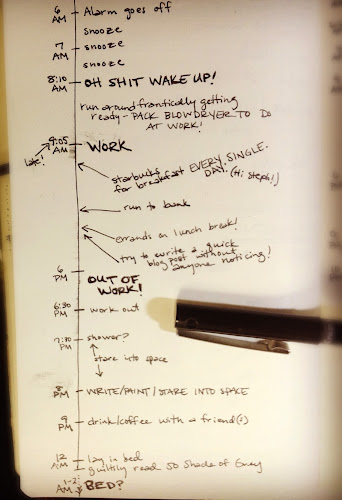 6 AM - Alarm goes off
snooze
7 AM - snooze
snooze
8:10 AM - OH SHIT WAKE UP!
run around frantically getting
ready - PACK BLOWDRYER TO DO
AT WORK!
9:05 AM - WORK
late!
starbucks EVERY. SINGLE.
for breakfast DAY. (Hi Steph!)
run to bank
errands on lunch break!
try to write a quick
blog post without
anyone noticing!
6 PM - OUT OF
WORK!
6:30 PM - work out
7:30 PM - shower?
stare into space
8 PM - WRITE/PAINT/STARE INTO SPACE
9 PM - drink/coffee with a friend(s)
12 AM - lay in bed
guiltily read 50 Shade of Grey
1-2 AM BED?